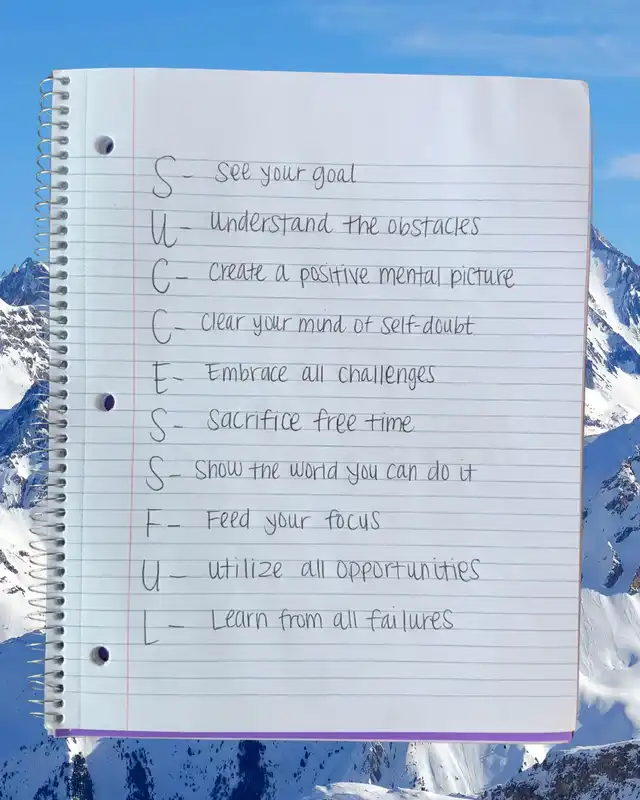 S- See your goal
U- Understand the obstacles
C- Create a positive mental picture
C- Clear your mind of self-doubt
E- Embrace all challenges
S- Sacrifice free time
S- Show the world you can do it
F- Feed your focus
U- Utilize all opportunities
L- Learn from all failures